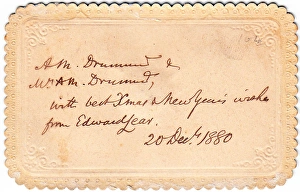 A.M. Drummond &
Mrs A.M. Drummond,
with best Xmas & New Year's wishes
from Edward Lear.
20 Decr. 1880